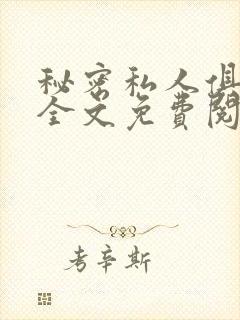 秘密私人俱
全文免费阅
考辛斯